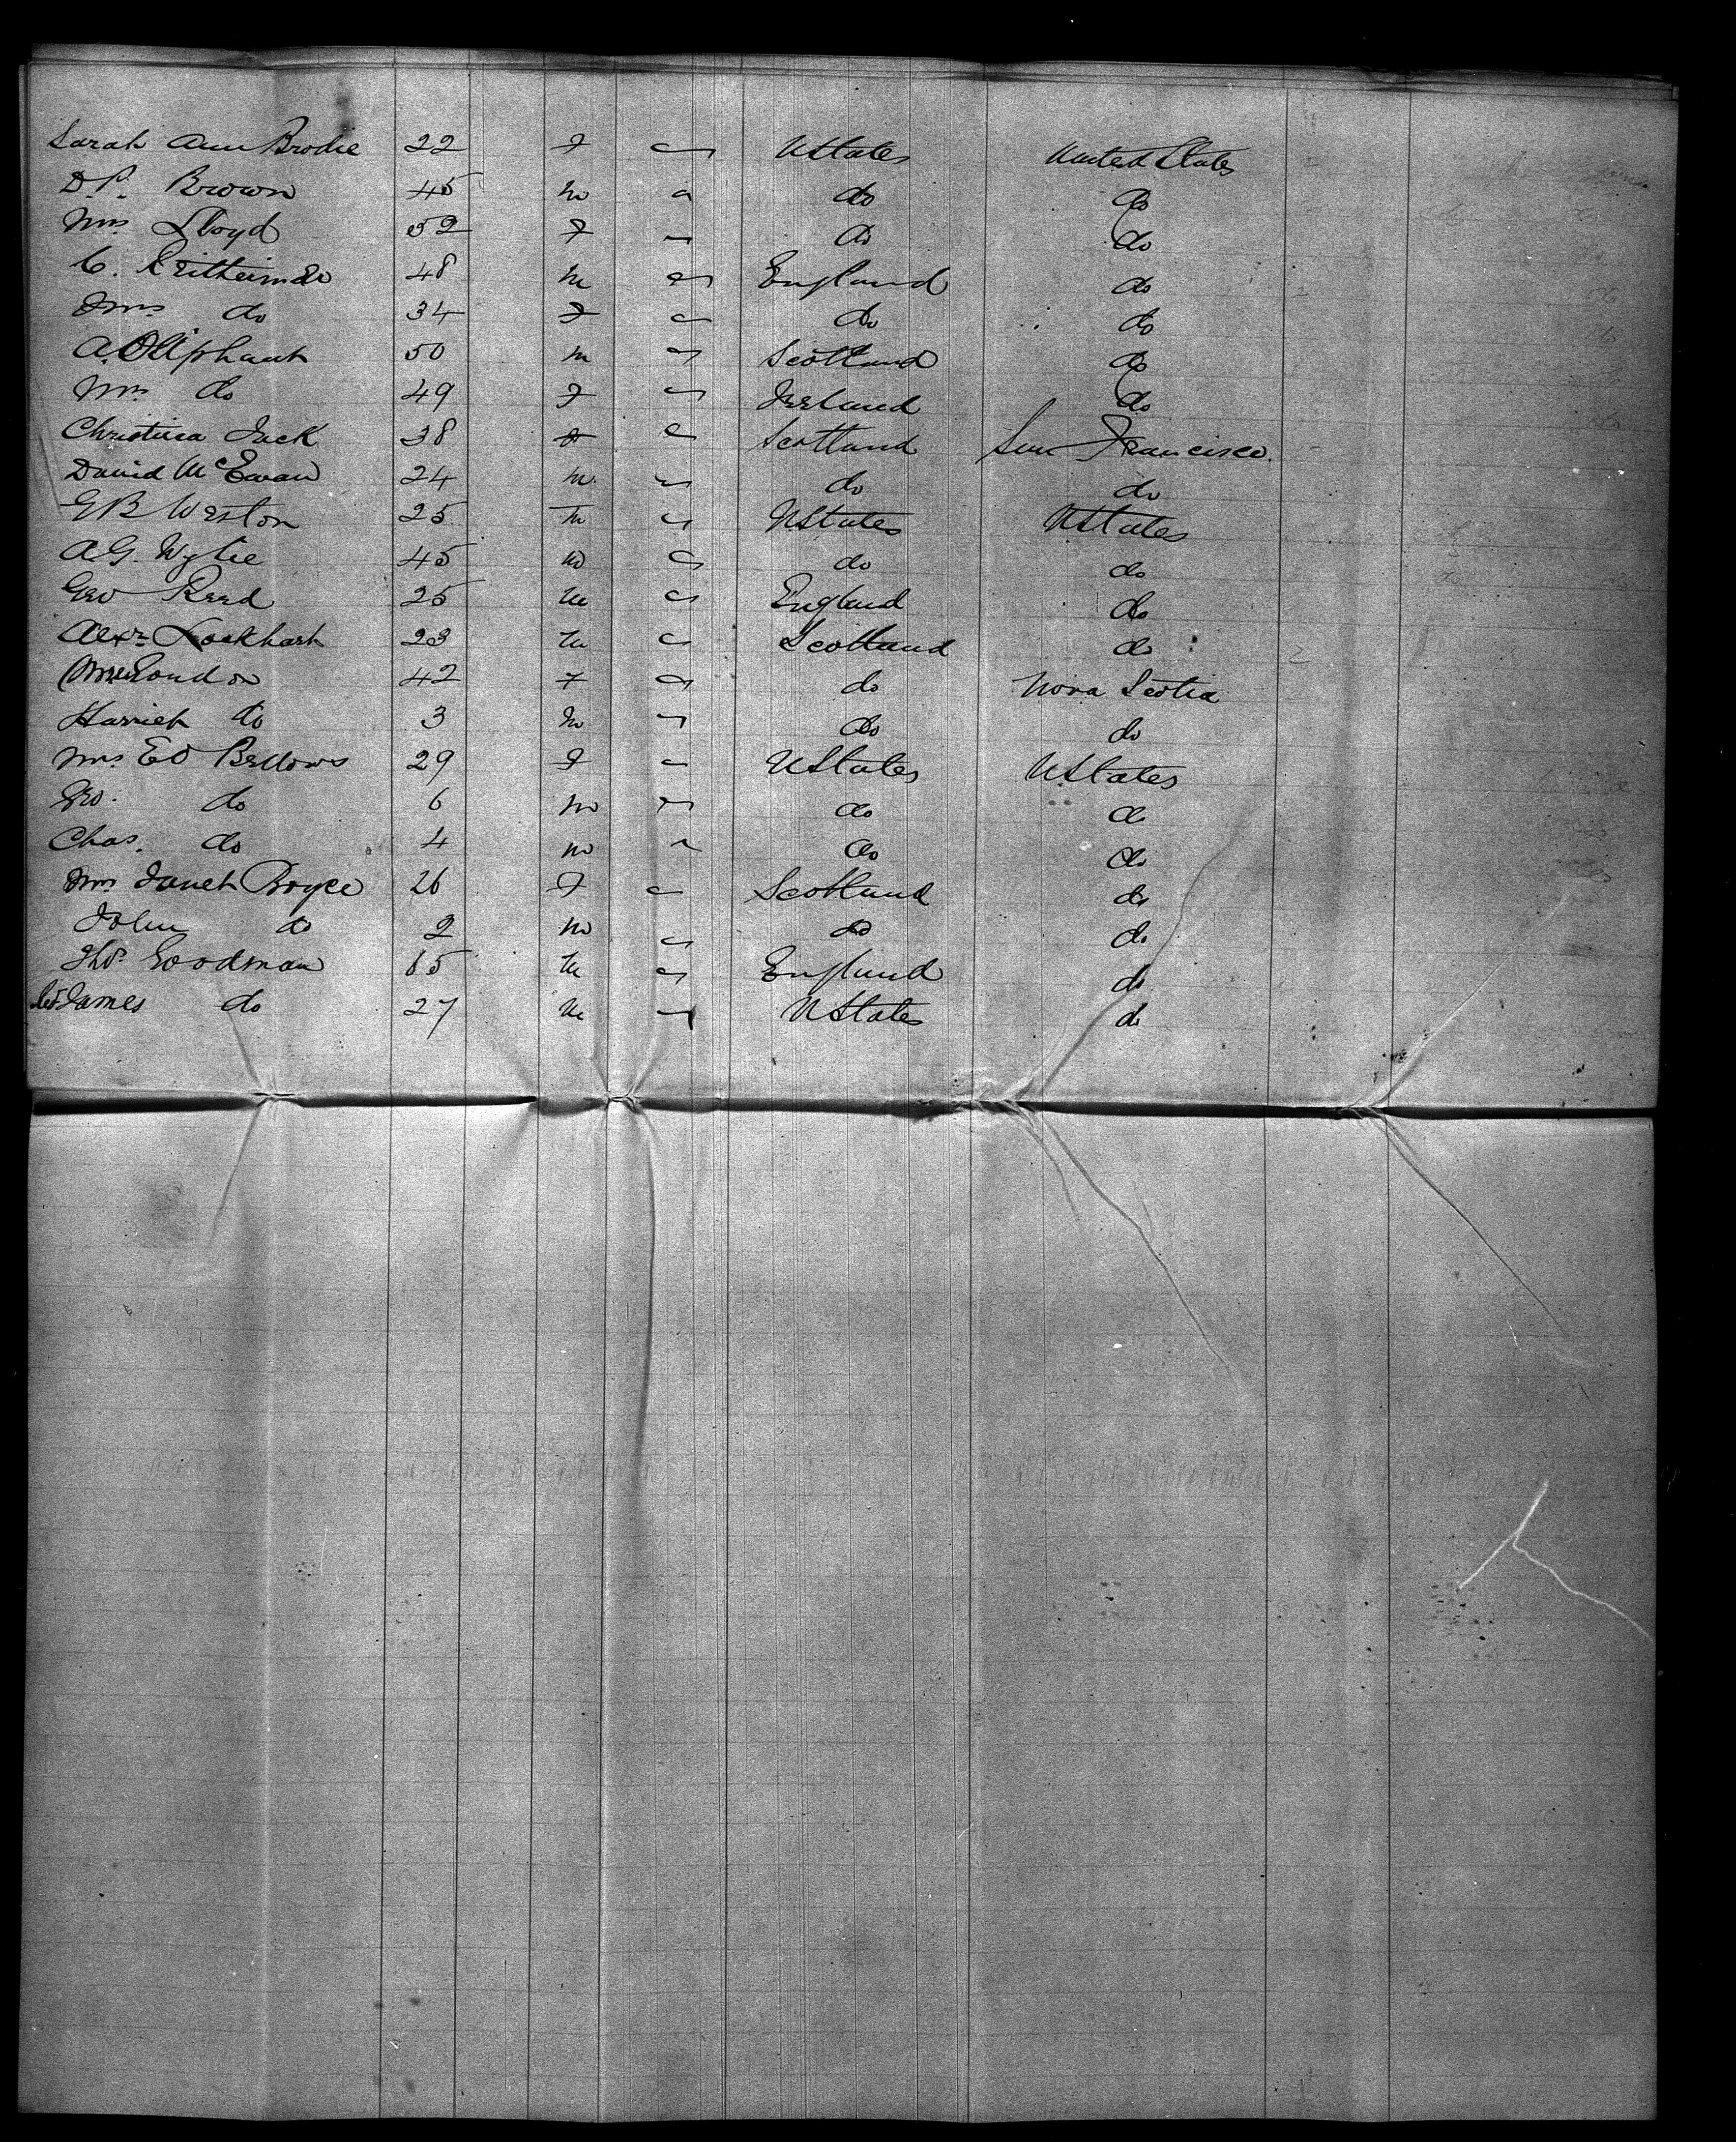 Sarah Ann Brodie 22 F UStates United States
D. P. Brown 45 M do do
Mrs Lloyd 52 F do do
C. 48 M England do
Mrs do 34 F do do
A. Oliphant 50 M Scotland do
Mrs do 49 F Ireland do
Christina Jack 38 F Scotland San Francisco.
David McEwan 24 M. do do
G B Weston 25 M UStates UStates
A. G. Wylie 45 M do do
Geo Reed 25 M England do
Alexr Lockhart 23 M Scotland do
Mrs 42 F do Nova Scotia
Harriet do 3 M do do
Mrs E D Bellows 29 F UStates UStates
Geo. do 6 M do do
Chas. do 4 M do do
Mrs Janet Boyce 26 F Scotland do
John do 2 M do do
Thos Goodman 65 M England do
James do 27 M UStates do